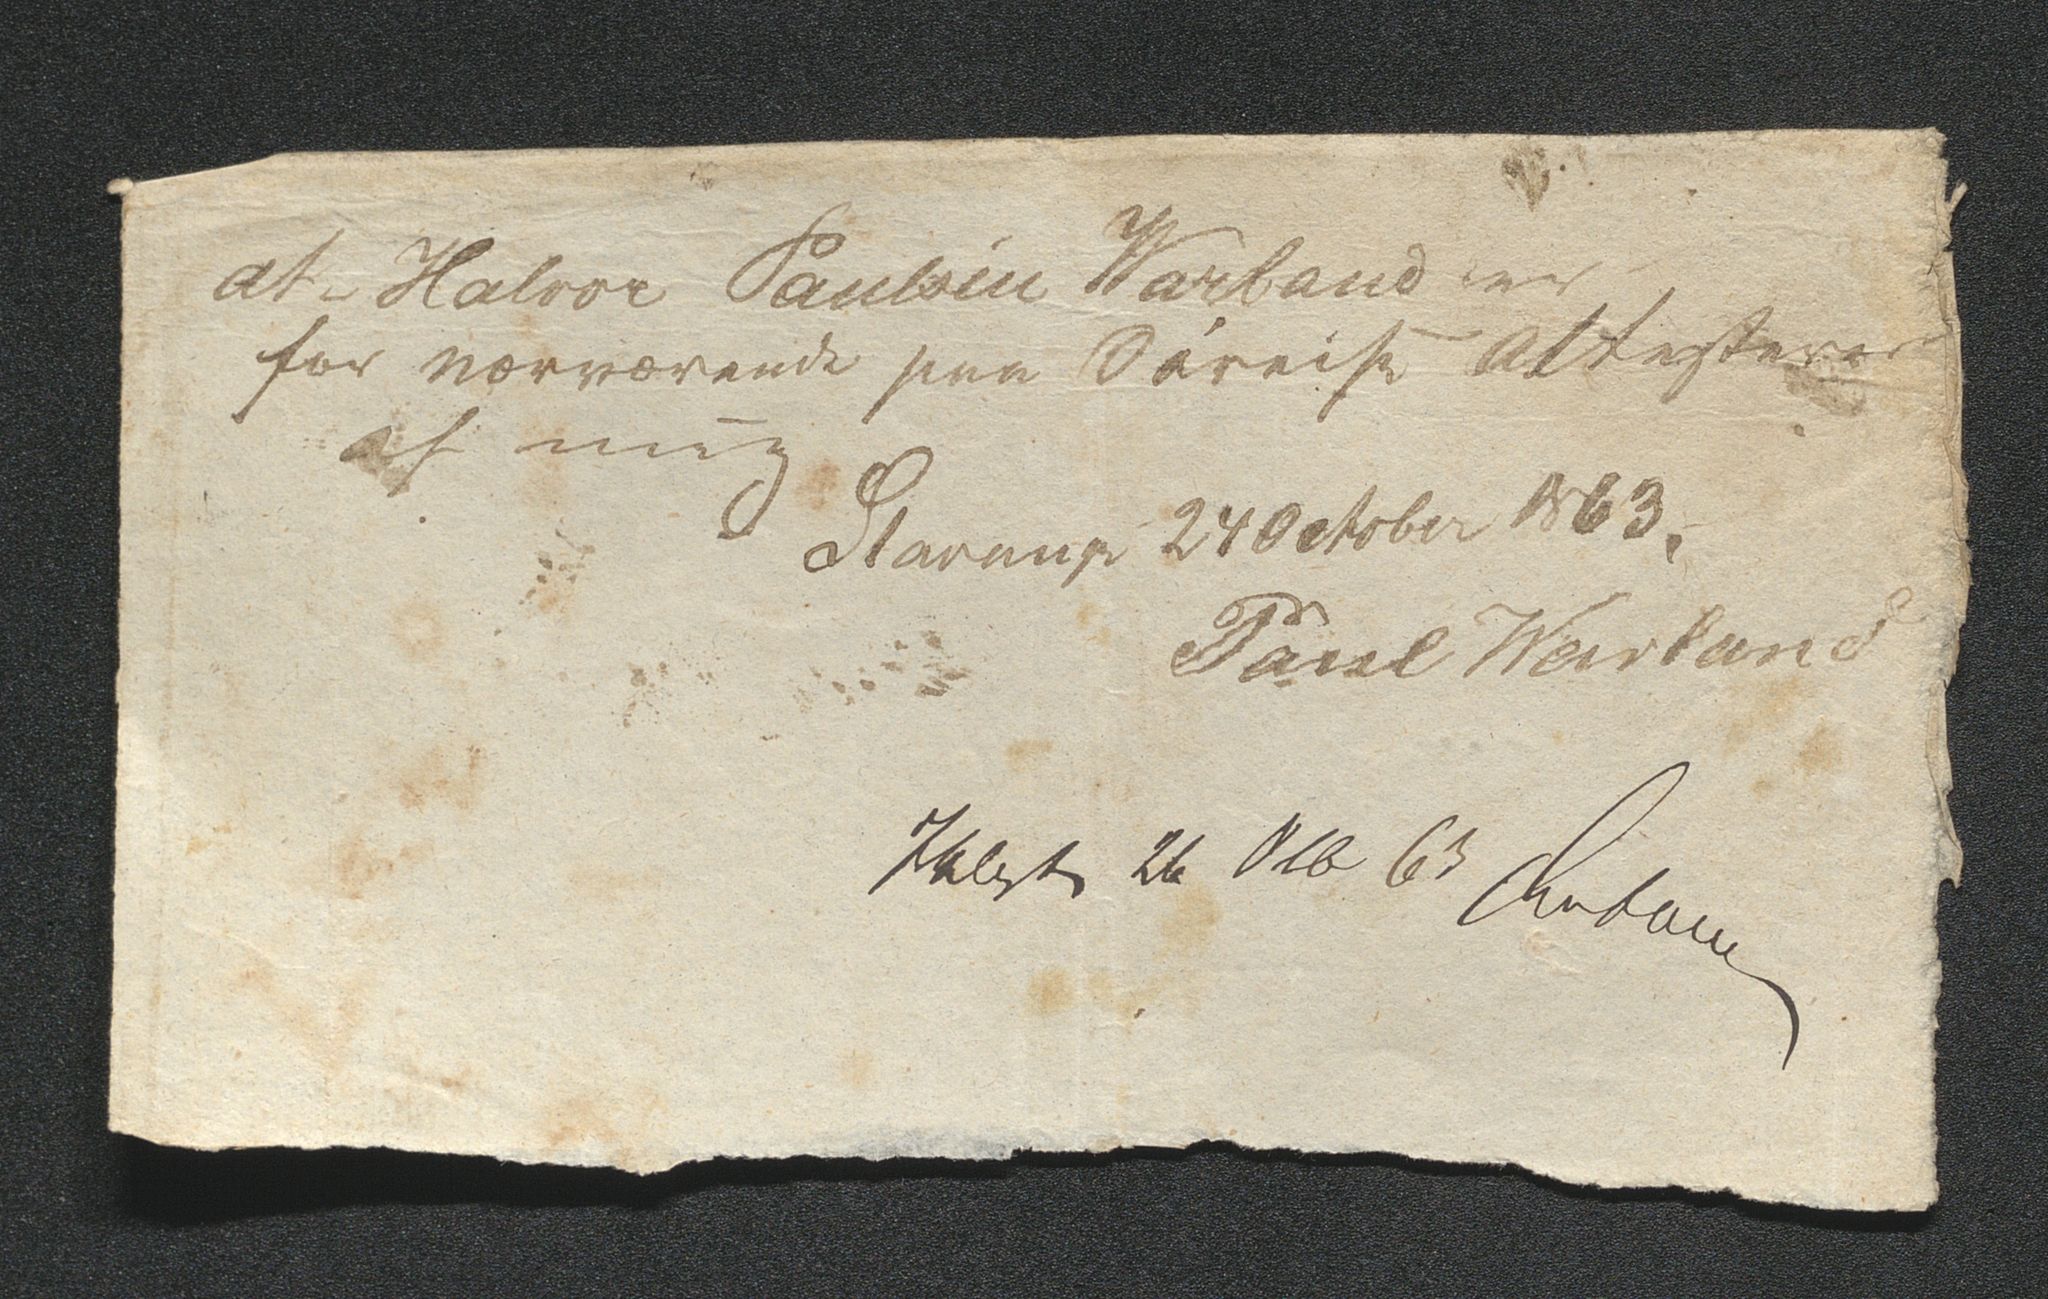 at Halvor Paulsen Warland er
for nærværende paa Söreise Attesterer
af mig
Starup 24 October 1863.
Paul Warland
26 Otb 63